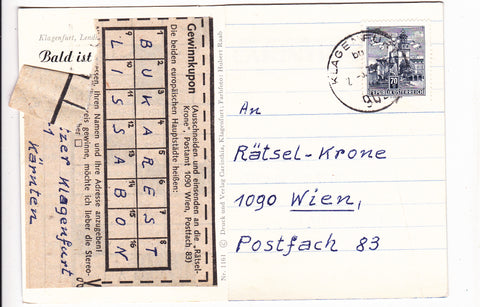 Klagenfurt, Lendk
Bald ist
Gewinnkupon
(Ausschneiden und einsenden an die „Rätsel-
Krone", Postamt 1090 Wien, Postfach 83)
Die beiden europäischen Hauptstädte heißen:
1 2 3 4 5 6 7 8
B U K A R E S T
9 10 11 12 13 14 15 16
L I S S A B O N
essen, Ihren Namen und Ihre Adresse anzugeben!
reis gewinne, möchte ich lieber die Stereo-
her
izer Klagenfurt
1
Kärnten
© Druck und Verlag Carinthia, Klagenfurt. Farbfoto: Hubert Raab
Nr. 1161
KLAGENFURT
9020
70
REPUBLIK ÖSTERREICH
An
Rätsel-Krone
1090 Wien,
Postfach 83